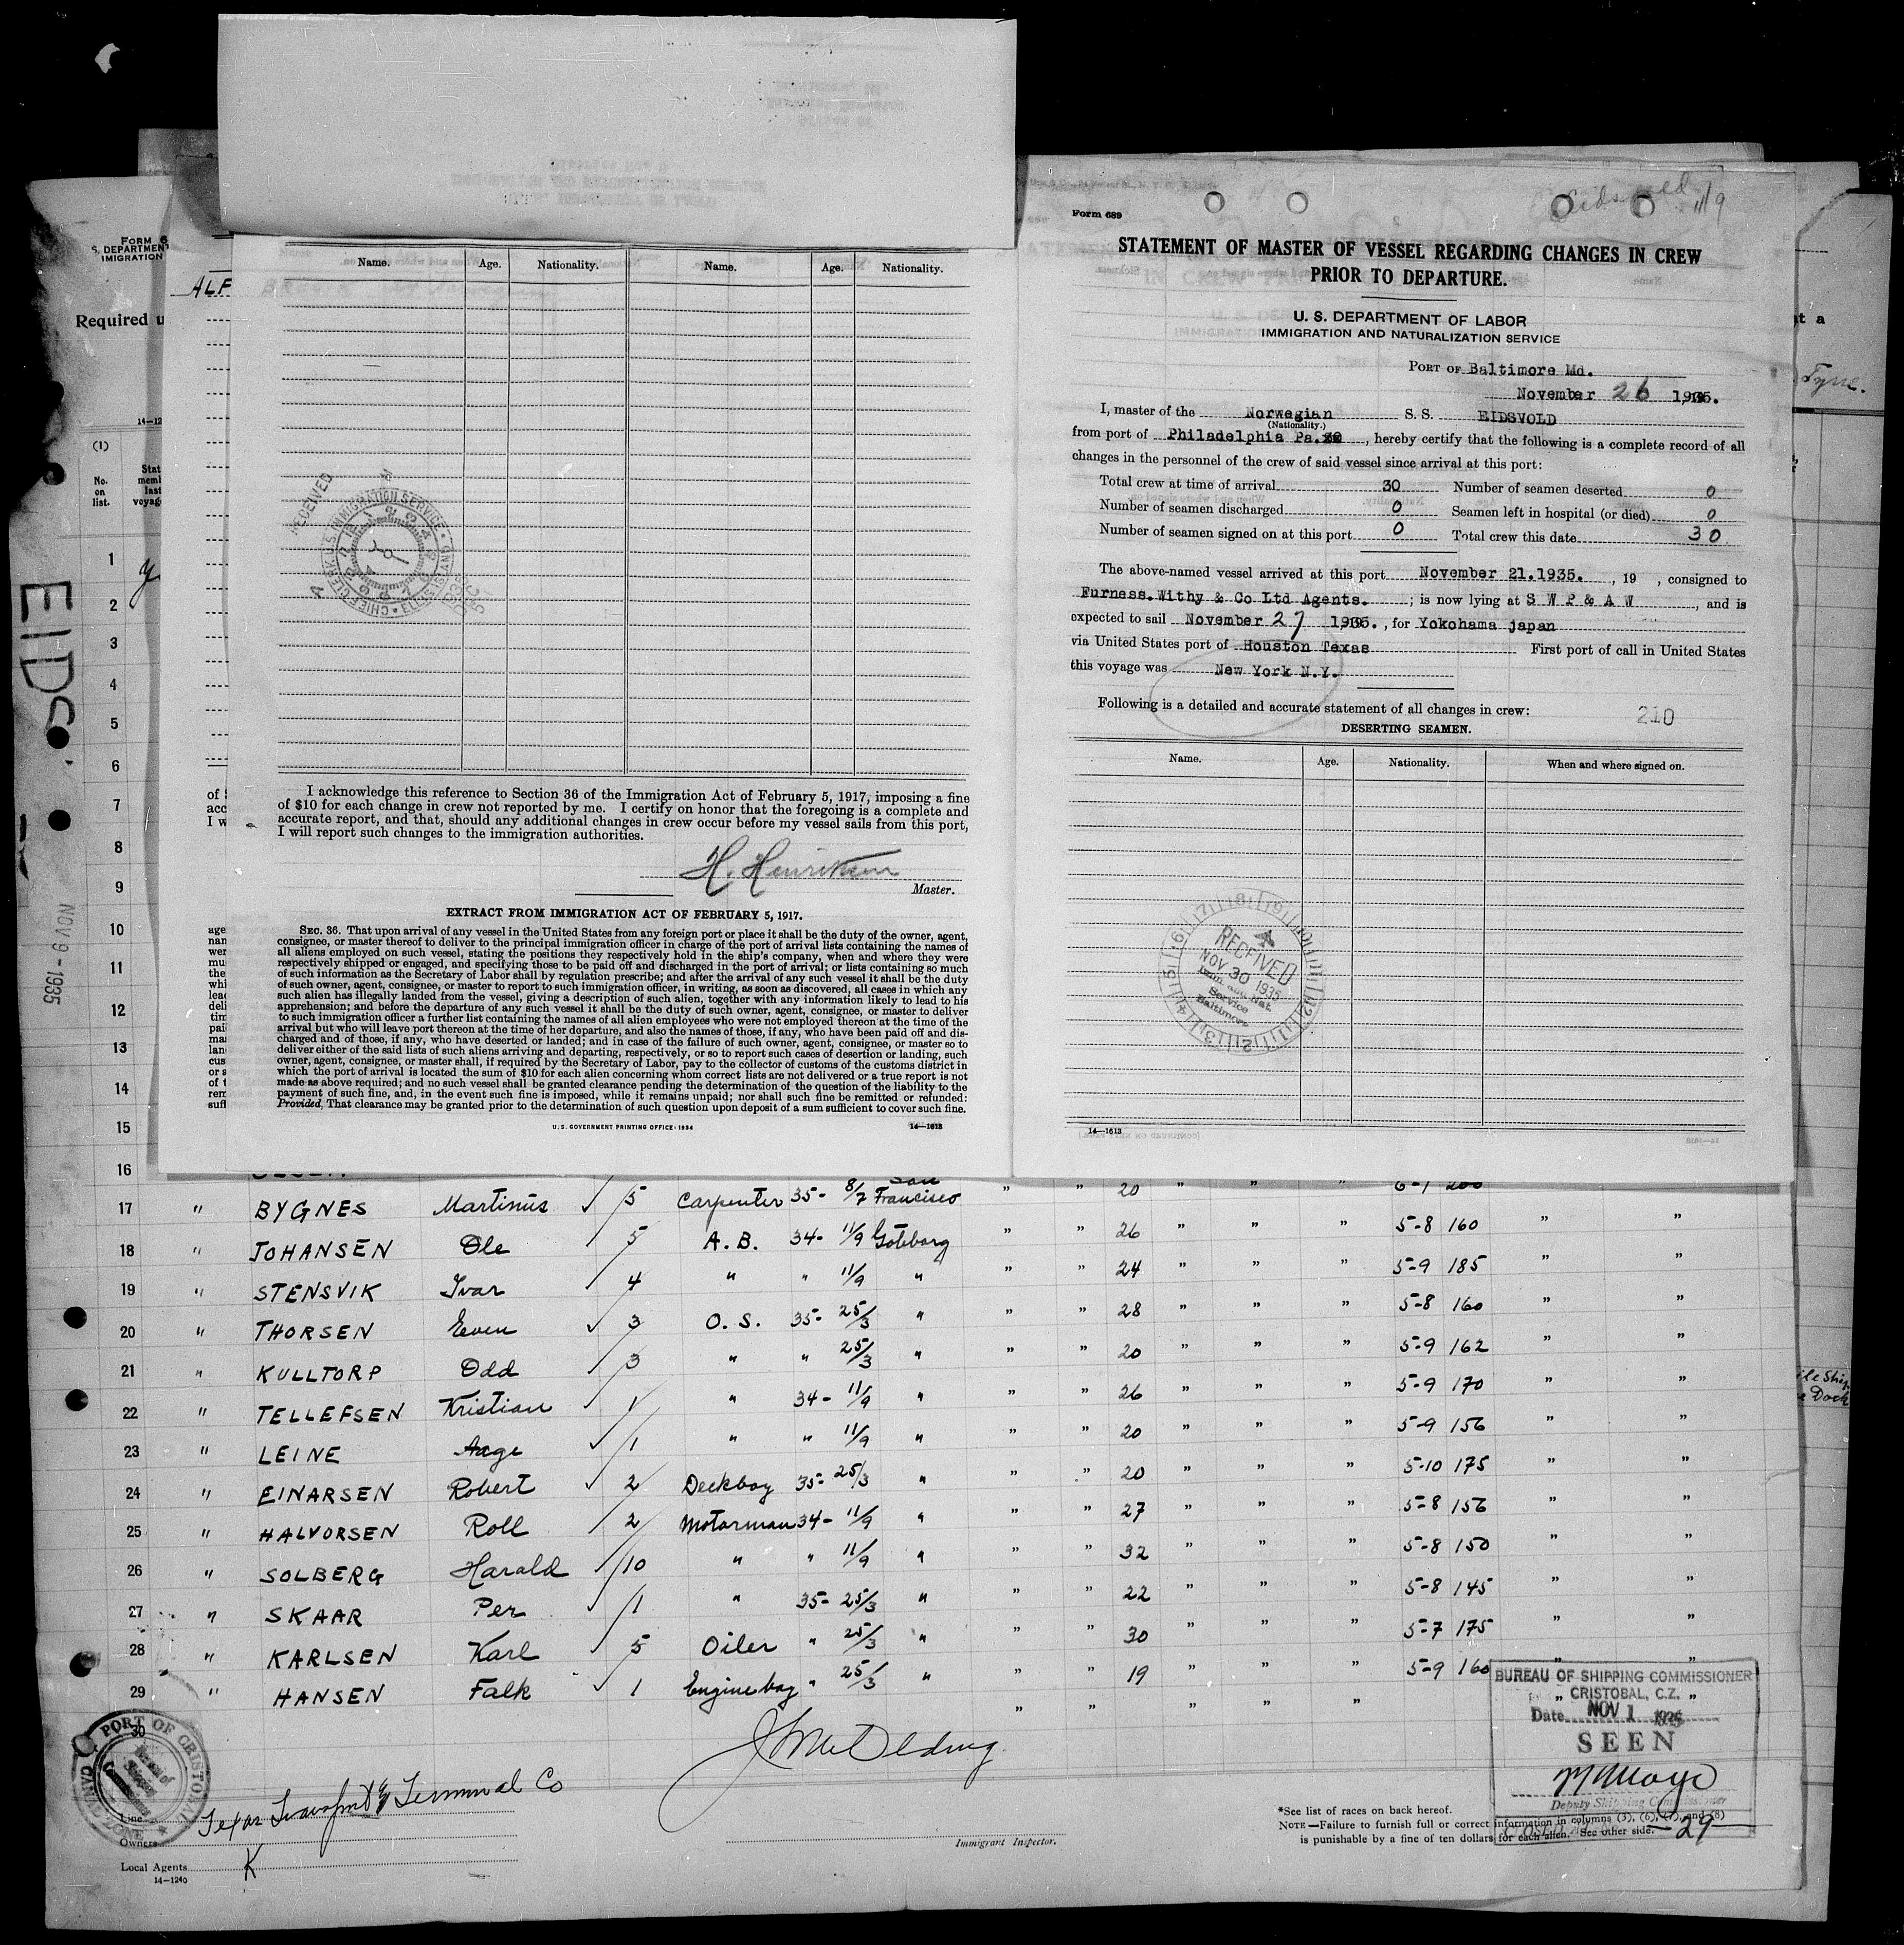 Eidsvold 11/9
Form 689
STATEMENT OF MASTER OF VESSEL REGARDING CHANGES IN CREW
PRIOR TO DEPARTURE.
U. S. DEPARTMENT OF LABOR
IMMIGRATION AND NATURALIZATION SERVICE
PORT OF Baltimore Md.
November 26 1935.
I, master of the Norwegian S. S. EIDSVOLD
(Nationality.)
from port of Philadelphia Pa. , hereby certify that the following is a complete record of all
changes in the personnel of the crew of said vessel since arrival at this port:
Total crew at time of arrival 30 Number of seamen deserted 0
Number of seamen discharged 0 Seamen left in hospital (or died) 0
Number of seamen signed on at this port 0 Total crew this date 30
The above-named vessel arrived at this port November 21.1935. , 19 , consigned to
Furness.Withy & Co Ltd Agents. ; is now lying at S W P & A W , and is
expected to sail November 27 1935. , for Yokohama japan
via United States port of Houston Texas First port of call in United States
this voyage was New York N.Y.
Following is a detailed and accurate statement of all changes in crew:
210
DESERTING SEAMEN.
Name. Age. Nationality. When and where signed on.
RECEIVED
NOV 30 1935
Imm. and Nat.
Service
Baltimore
14—1613
Name. Age. Nationality. Name. Age. Nationality.
RECEIVED
CHIEF CLERK U.S. IMMIGRATION SERVICE ELLIS ISLAND
I acknowledge this reference to Section 36 of the Immigration Act of February 5, 1917, imposing a fine
of $10 for each change in crew not reported by me. I certify on honor that the foregoing is a complete and
accurate report, and that, should any additional changes in crew occur before my vessel sails from this port,
I will report such changes to the immigration authorities.
H. Henriksen
Master.
EXTRACT FROM IMMIGRATION ACT OF FEBRUARY 5, 1917.
SEC. 36. That upon arrival of any vessel in the United States from any foreign port or place it shall be the duty of the owner, agent,
consignee, or master thereof to deliver to the principal immigration officer in charge of the port of arrival lists containing the names of
all aliens employed on such vessel, stating the positions they respectively hold in the ship's company, when and where they were
respectively shipped or engaged, and specifying those to be paid off and discharged in the port of arrival; or lists containing so much
of such information as the Secretary of Labor shall by regulation prescribe; and after the arrival of any such vessel it shall be the duty
of such owner, agent, consignee, or master to report to such immigration officer, in writing, as soon as discovered, all cases in which any
such alien has illegally landed from the vessel, giving a description of such alien, together with any information likely to lead to his
apprehension; and before the departure of any such vessel it shall be the duty of such owner, agent, consignee, or master to deliver
to such immigration officer a further list containing the names of all alien employees who were not employed thereon at the time of the
arrival but who will leave port thereon at the time of her departure, and also the names of those, if any, who have been paid off and dis-
charged and of those, if any, who have deserted or landed; and in case of the failure of such owner, agent, consignee, or master so to
deliver either of the said lists of such aliens arriving and departing, respectively, or so to report such cases of desertion or landing, such
owner, agent, consignee, or master shall, if required by the Secretary of Labor, pay to the collector of customs of the customs district in
which the port of arrival is located the sum of $10 for each alien concerning whom correct lists are not delivered or a true report is not
made as above required; and no such vessel shall be granted clearance pending the determination of the question of the liability to the
payment of such fine, and, in the event such fine is imposed, while it remains unpaid; nor shall such fine be remitted or refunded:
Provided, That clearance may be granted prior to the determination of such question upon deposit of a sum sufficient to cover such fine.
U.S. GOVERNMENT PRINTING OFFICE: 1934 14—1613
FORM 6
S. DEPARTMENT
IMIGRATION
ALF
Required u
14—12
(1)
No. on list.
EIDS
NOV 9 - 1935
t a
Tyne.
1
2
3
4
5
6
7
8
9
10
11
12
13
14
15
16
17 " BYGNES Martinus ✓ 5 Carpenter 35- 8/7 San Francisco " " 20 " " " 6-1 200
18 " JOHANSEN Ole 5 A.B. 34- 11/9 Goteborg " " 26 " " " 5-8 160 " "
19 " STENSVIK Ivar 4 " " 11/9 " " " 24 " " " 5-9 185 " "
20 " THORSEN Even ✓ 3 O.S. 35- 25/3 " " " 28 " " " 5-8 160 " "
21 " KULLTORP Odd 3 " " 25/3 " " " 20 " " " 5-9 162 " "
22 " TELLEFSEN Kristian 1 " 34- 11/9 " " " 26 " " " 5-9 170 " "
23 " LEINE Aage ✓ 1 " " 11/9 " " " 20 " " " 5-9 156 " "
24 " EINARSEN Robert ✓ 2 Deckboy 35- 25/3 " " " 20 " " " 5-10 175 " "
25 " HALVORSEN Rolf 2 Motorman 34- 11/9 " " " 27 " " " 5-8 156 " "
26 " SOLBERG Harald 10 " " 11/9 " " " 32 " " " 5-8 150 " "
27 " SKAAR Per ✓ 1 " 35- 25/3 " " " 22 " " " 5-8 145 " "
28 " KARLSEN Karl 5 Oiler " 25/3 " " " 30 " " " 5-7 175 " "
29 " HANSEN Falk ✓ 1 Engineboy " 25/3 " " " 19 " " " 5-9 160 " "
30
PORT OF CRISTOBAL
CANAL ZONE
Bureau of Shipping Commissioner
BUREAU OF SHIPPING COMMISSIONER
CRISTOBAL, C.Z.
Date NOV 1 1935
SEEN
Deputy Shipping Commissioner
Line
Texas Transport & Terminal Co
Owners
Local Agents
14—1240
Immigrant Inspector.
*See list of races on back hereof.
NOTE—Failure to furnish full or correct information in columns (3), (6), (7), and (8)
is punishable by a fine of ten dollars for each alien. See other side.
29